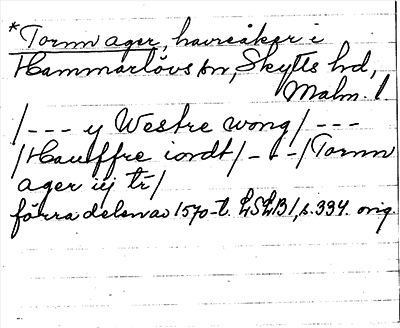 *Tormager, havreåker i
Hammarlövs sn, Skytts hd,
Malm. l
/--- y Westre wong/ ---
/Hauffre iordt/ - - -/Tormm
ager iij tr/
förra delen av 1570-t. LSLB1, s. 334. orig.